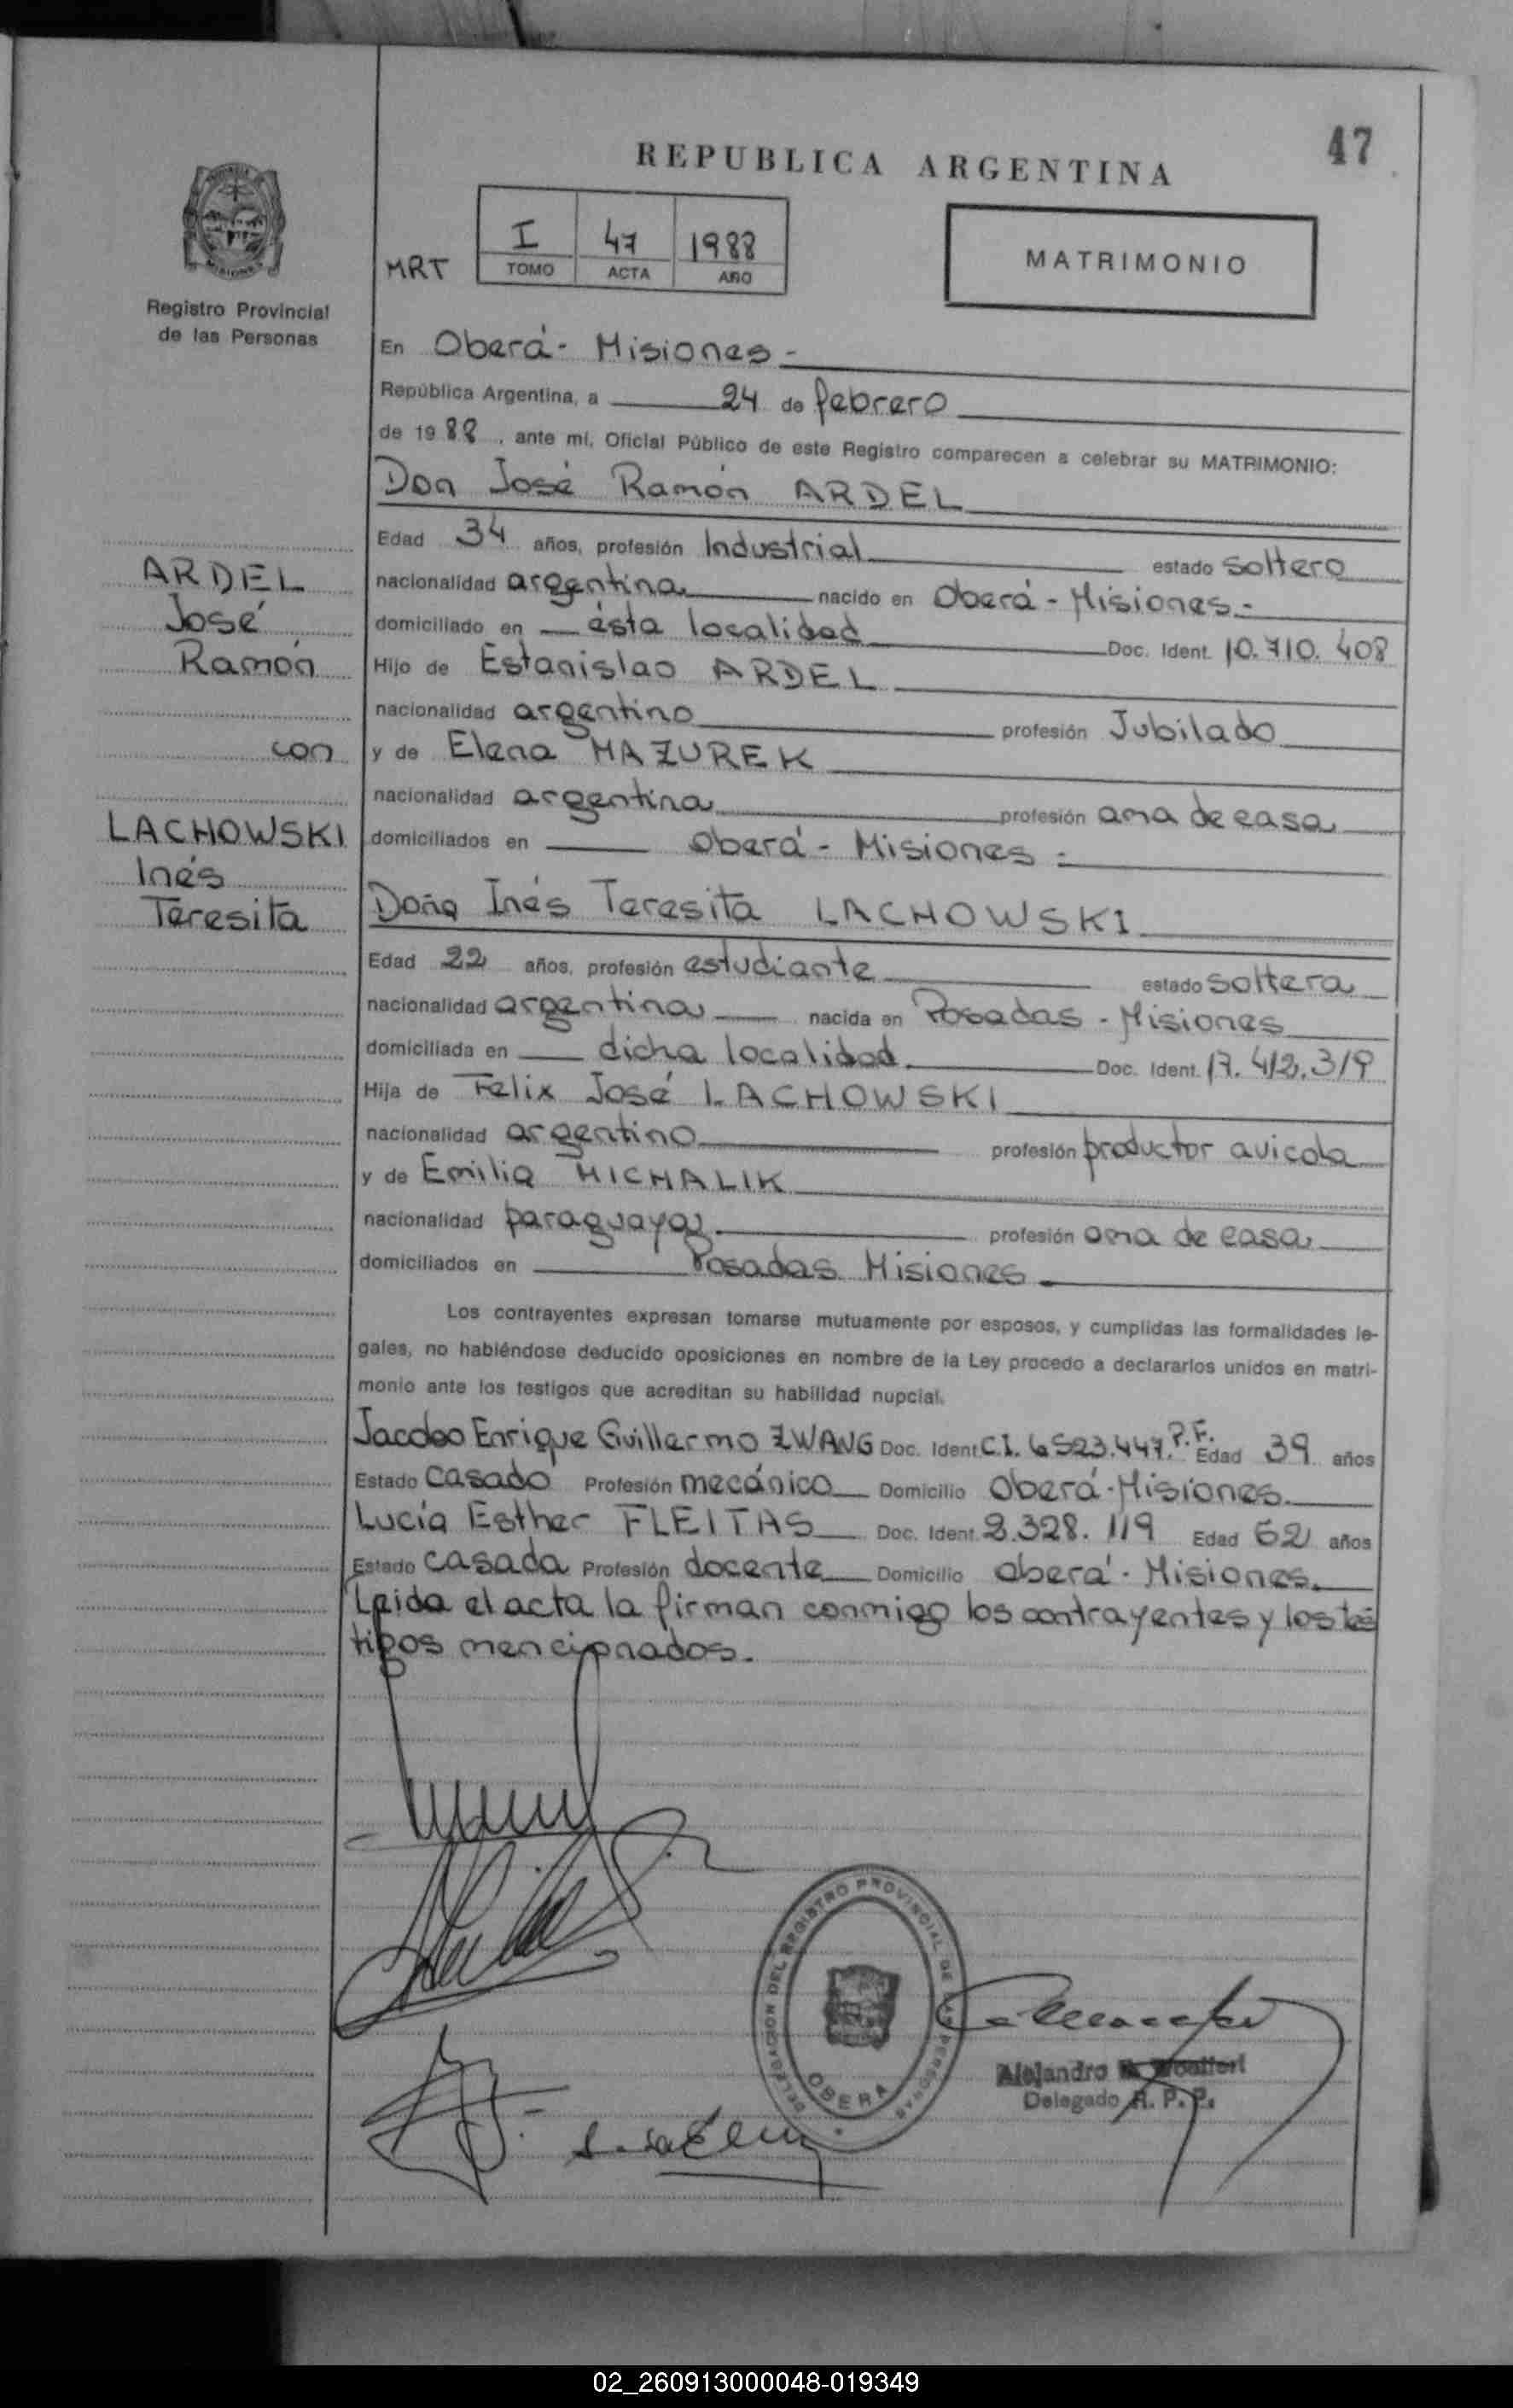 47
REPUBLICA ARGENTINA
I 47 1988
MRT TOMO ACTA AÑO
MATRIMONIO
MISIONES
Registro Provincial
de las Personas
En Oberá - Misiones -
República Argentina, a 24 de febrero
de 1988, ante mí, Oficial Público de este Registro comparecen a celebrar su MATRIMONIO:
Don José Ramón ARDEL
Edad 34 años, profesión Industrial estado soltero
nacionalidad argentina nacido en Oberá - Misiones -
domiciliado en ésta localidad Doc. Ident. 10.710.408
Hijo de Estanislao ARDEL
nacionalidad argentino profesión Jubilado
y de Elena MAZUREK
nacionalidad argentina profesión ama de casa
domiciliados en Oberá - Misiones -
Doña Inés Teresita LACHOWSKI
Edad 22 años, profesión estudiante estado soltera
nacionalidad argentina nacida en Posadas - Misiones
domiciliada en dicha localidad Doc. Ident. 17.412.319
Hija de Felix José LACHOWSKI
nacionalidad argentino profesión productor avicola
y de Emilia MICHALIK
nacionalidad paraguaya profesión ama de casa
domiciliados en Posadas Misiones
ARDEL
José
Ramón
con
LACHOWSKI
Inés
Teresita
Los contrayentes expresan tomarse mutuamente por esposos, y cumplidas las formalidades le-
gales, no habiéndose deducido oposiciones en nombre de la Ley procedo a declararlos unidos en matri-
monio ante los testigos que acreditan su habilidad nupcial.
Jacobo Enrique Guillermo ZWANG Doc. Ident. C.I. 6523.447. P.F. Edad 39 años
Estado casado Profesión mecánico Domicilio Oberá - Misiones
Lucía Esther FLEITAS Doc. Ident. 2.328.119 Edad 62 años
Estado casada Profesión docente Domicilio Oberá - Misiones.
Leida el acta la firman conmigo los contrayentes y los tes
tigos mencionados.
DELEGACION DEL REGISTRO PROVINCIAL DE LAS PERSONAS
OBERA
Alejandro
Delegado R. P. P.
02_260913000048-019349